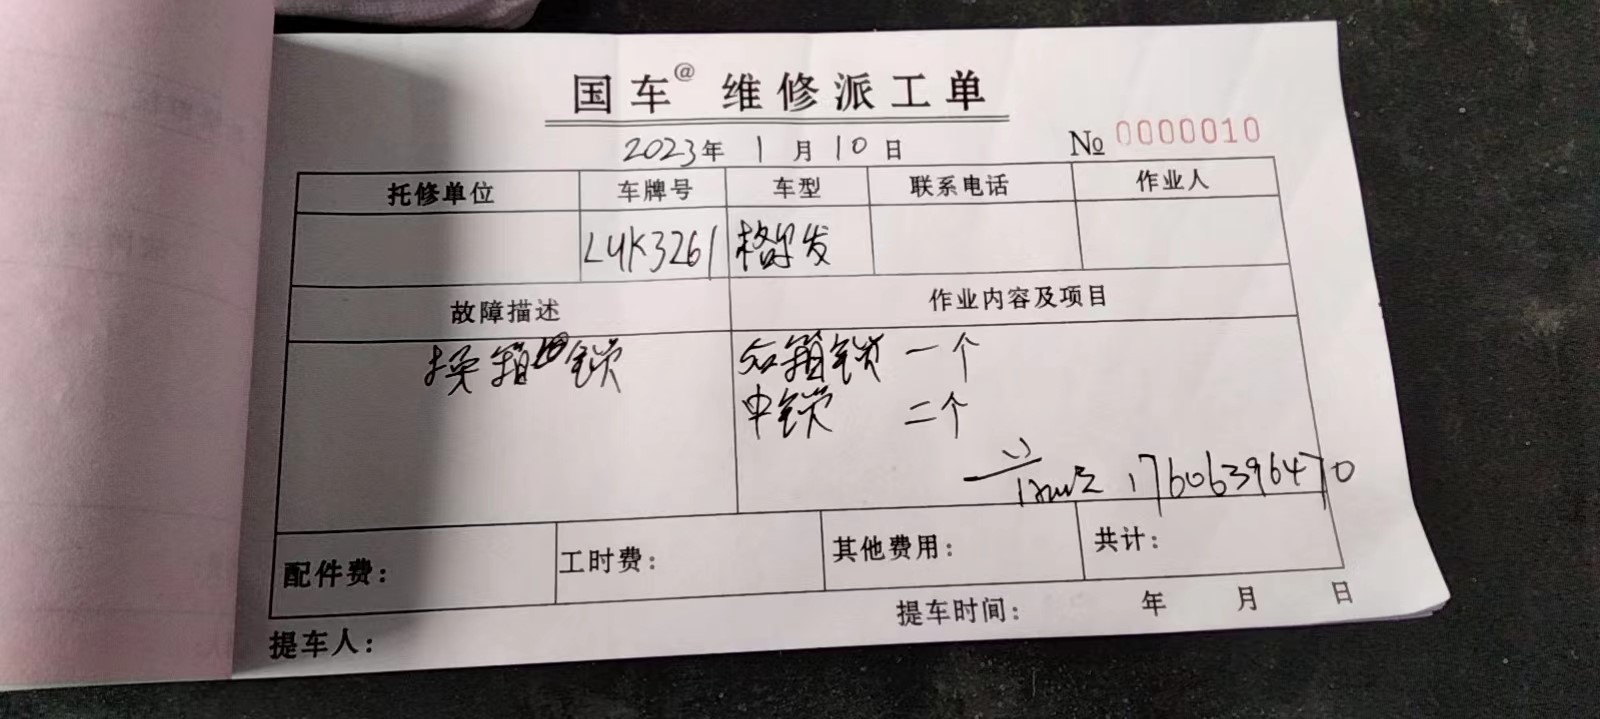 国车@ 维修派工单
2023年 1月10日 № 0000010
托修单位 车牌号 车型 联系电话 作业人
LUK3261 格尔发
故障描述 作业内容及项目
换箱锁 后箱锁 一个
中锁 二个
17606396470
配件费： 工时费： 其他费用： 共计：
提车人： 提车时间： 年 月 日